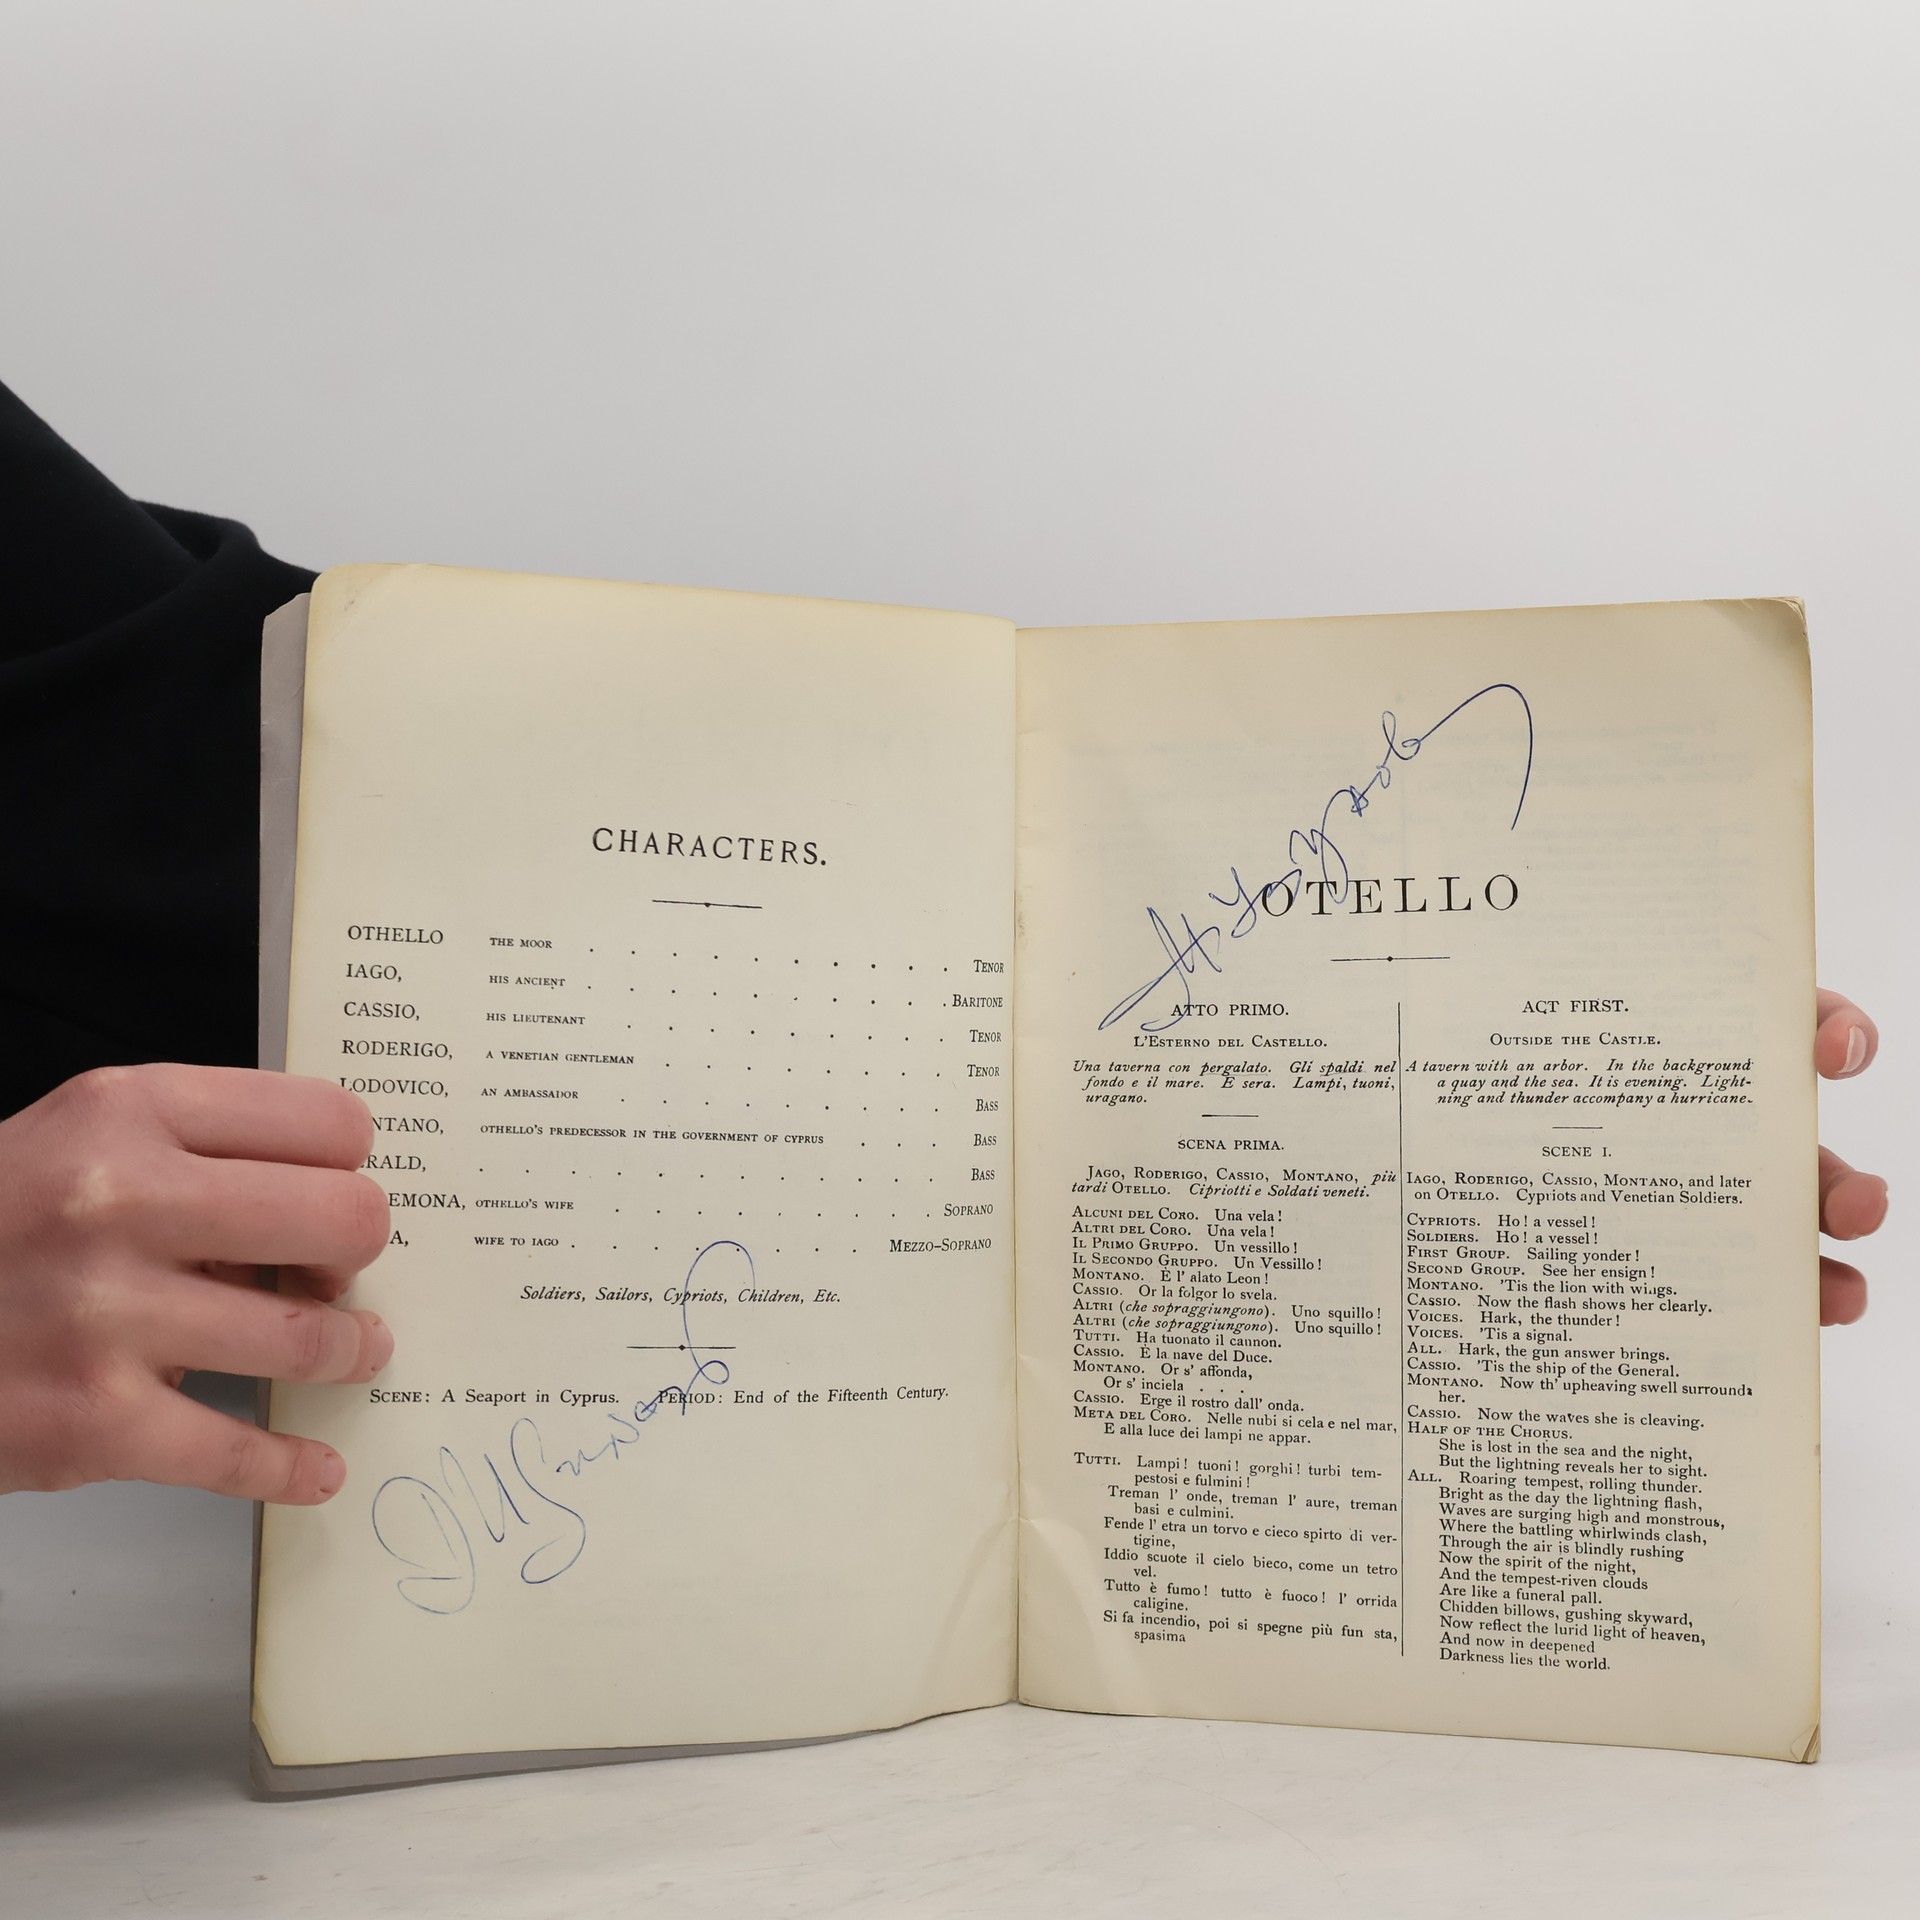 CHARACTERS.
OTHELLO THE MOOR . . . . . . . . . . TENOR
IAGO, HIS ANCIENT . . . . . . . . . . BARITONE
CASSIO, HIS LIEUTENANT . . . . . . . . . TENOR
RODERIGO, A VENETIAN GENTLEMAN . . . . . . . . TENOR
LODOVICO, AN AMBASSADOR . . . . . . . . . BASS
NTANO, OTHELLO'S PREDECESSOR IN THE GOVERNMENT OF CYPRUS . . . BASS
RALD, . . . . . . . . . . . . BASS
EMONA, OTHELLO'S WIFE . . . . . . . . . SOPRANO
A, WIFE TO IAGO . . . . . . . . MEZZO-SOPRANO
Soldiers, Sailors, Cypriots, Children, Etc.
SCENE: A Seaport in Cyprus. PERIOD: End of the Fifteenth Century.
OTELLO
ATTO PRIMO.
L'ESTERNO DEL CASTELLO.
Una taverna con pergalato. Gli spaldi nel
fondo e il mare. E sera. Lampi, tuoni,
uragano.
SCENA PRIMA.
JAGO, RODERIGO, CASSIO, MONTANO, più
tardi OTELLO. Cipriotti e Soldati veneti.
ALCUNI DEL CORO. Una vela!
ALTRI DEL CORO. Una vela!
IL PRIMO GRUPPO. Un vessillo!
IL SECONDO GRUPPO. Un Vessillo!
MONTANO. È l' alato Leon!
CASSIO. Or la folgor lo svela.
ALTRI (che sopraggiungono). Uno squillo!
ALTRI (che sopraggiungono). Uno squillo!
TUTTI. Ha tuonato il cannon.
CASSIO. È la nave del Duce.
MONTANO. Or s' affonda,
Or s' inciela . . .
CASSIO. Erge il rostro dall' onda.
META DEL CORO. Nelle nubi si cela e nel mar,
E alla luce dei lampi ne appar.
TUTTI. Lampi! tuoni! gorghi! turbi tem-
pestosi e fulmini!
Treman l' onde, treman l' aure, treman
basi e culmini.
Fende l' etra un torvo e cieco spirto di ver-
tigine,
Iddio scuote il cielo bieco, come un tetro
vel.
Tutto è fumo! tutto è fuoco! l' orrida
caligine.
Si fa incendio, poi si spegne più fun sta,
spasima
ACT FIRST.
OUTSIDE THE CASTLE.
A tavern with an arbor. In the background
a quay and the sea. It is evening. Light-
ning and thunder accompany a hurricane.
SCENE I.
IAGO, RODERIGO, CASSIO, MONTANO, and later
on OTELLO. Cypriots and Venetian Soldiers.
CYPRIOTS. Ho! a vessel!
SOLDIERS. Ho! a vessel!
FIRST GROUP. Sailing yonder!
SECOND GROUP. See her ensign!
MONTANO. 'Tis the lion with wings.
CASSIO. Now the flash shows her clearly.
VOICES. Hark, the thunder!
VOICES. 'Tis a signal.
ALL. Hark, the gun answer brings.
CASSIO. 'Tis the ship of the General.
MONTANO. Now th' upheaving swell surrounds
her.
CASSIO. Now the waves she is cleaving.
HALF OF THE CHORUS.
She is lost in the sea and the night,
But the lightning reveals her to sight.
ALL. Roaring tempest, rolling thunder.
Bright as the day the lightning flash,
Waves are surging high and monstrous,
Where the battling whirlwinds clash,
Through the air is blindly rushing
Now the spirit of the night,
And the tempest-riven clouds
Are like a funeral pall.
Chidden billows, gushing skyward,
Now reflect the lurid light of heaven,
And now in deepened
Darkness lies the world.